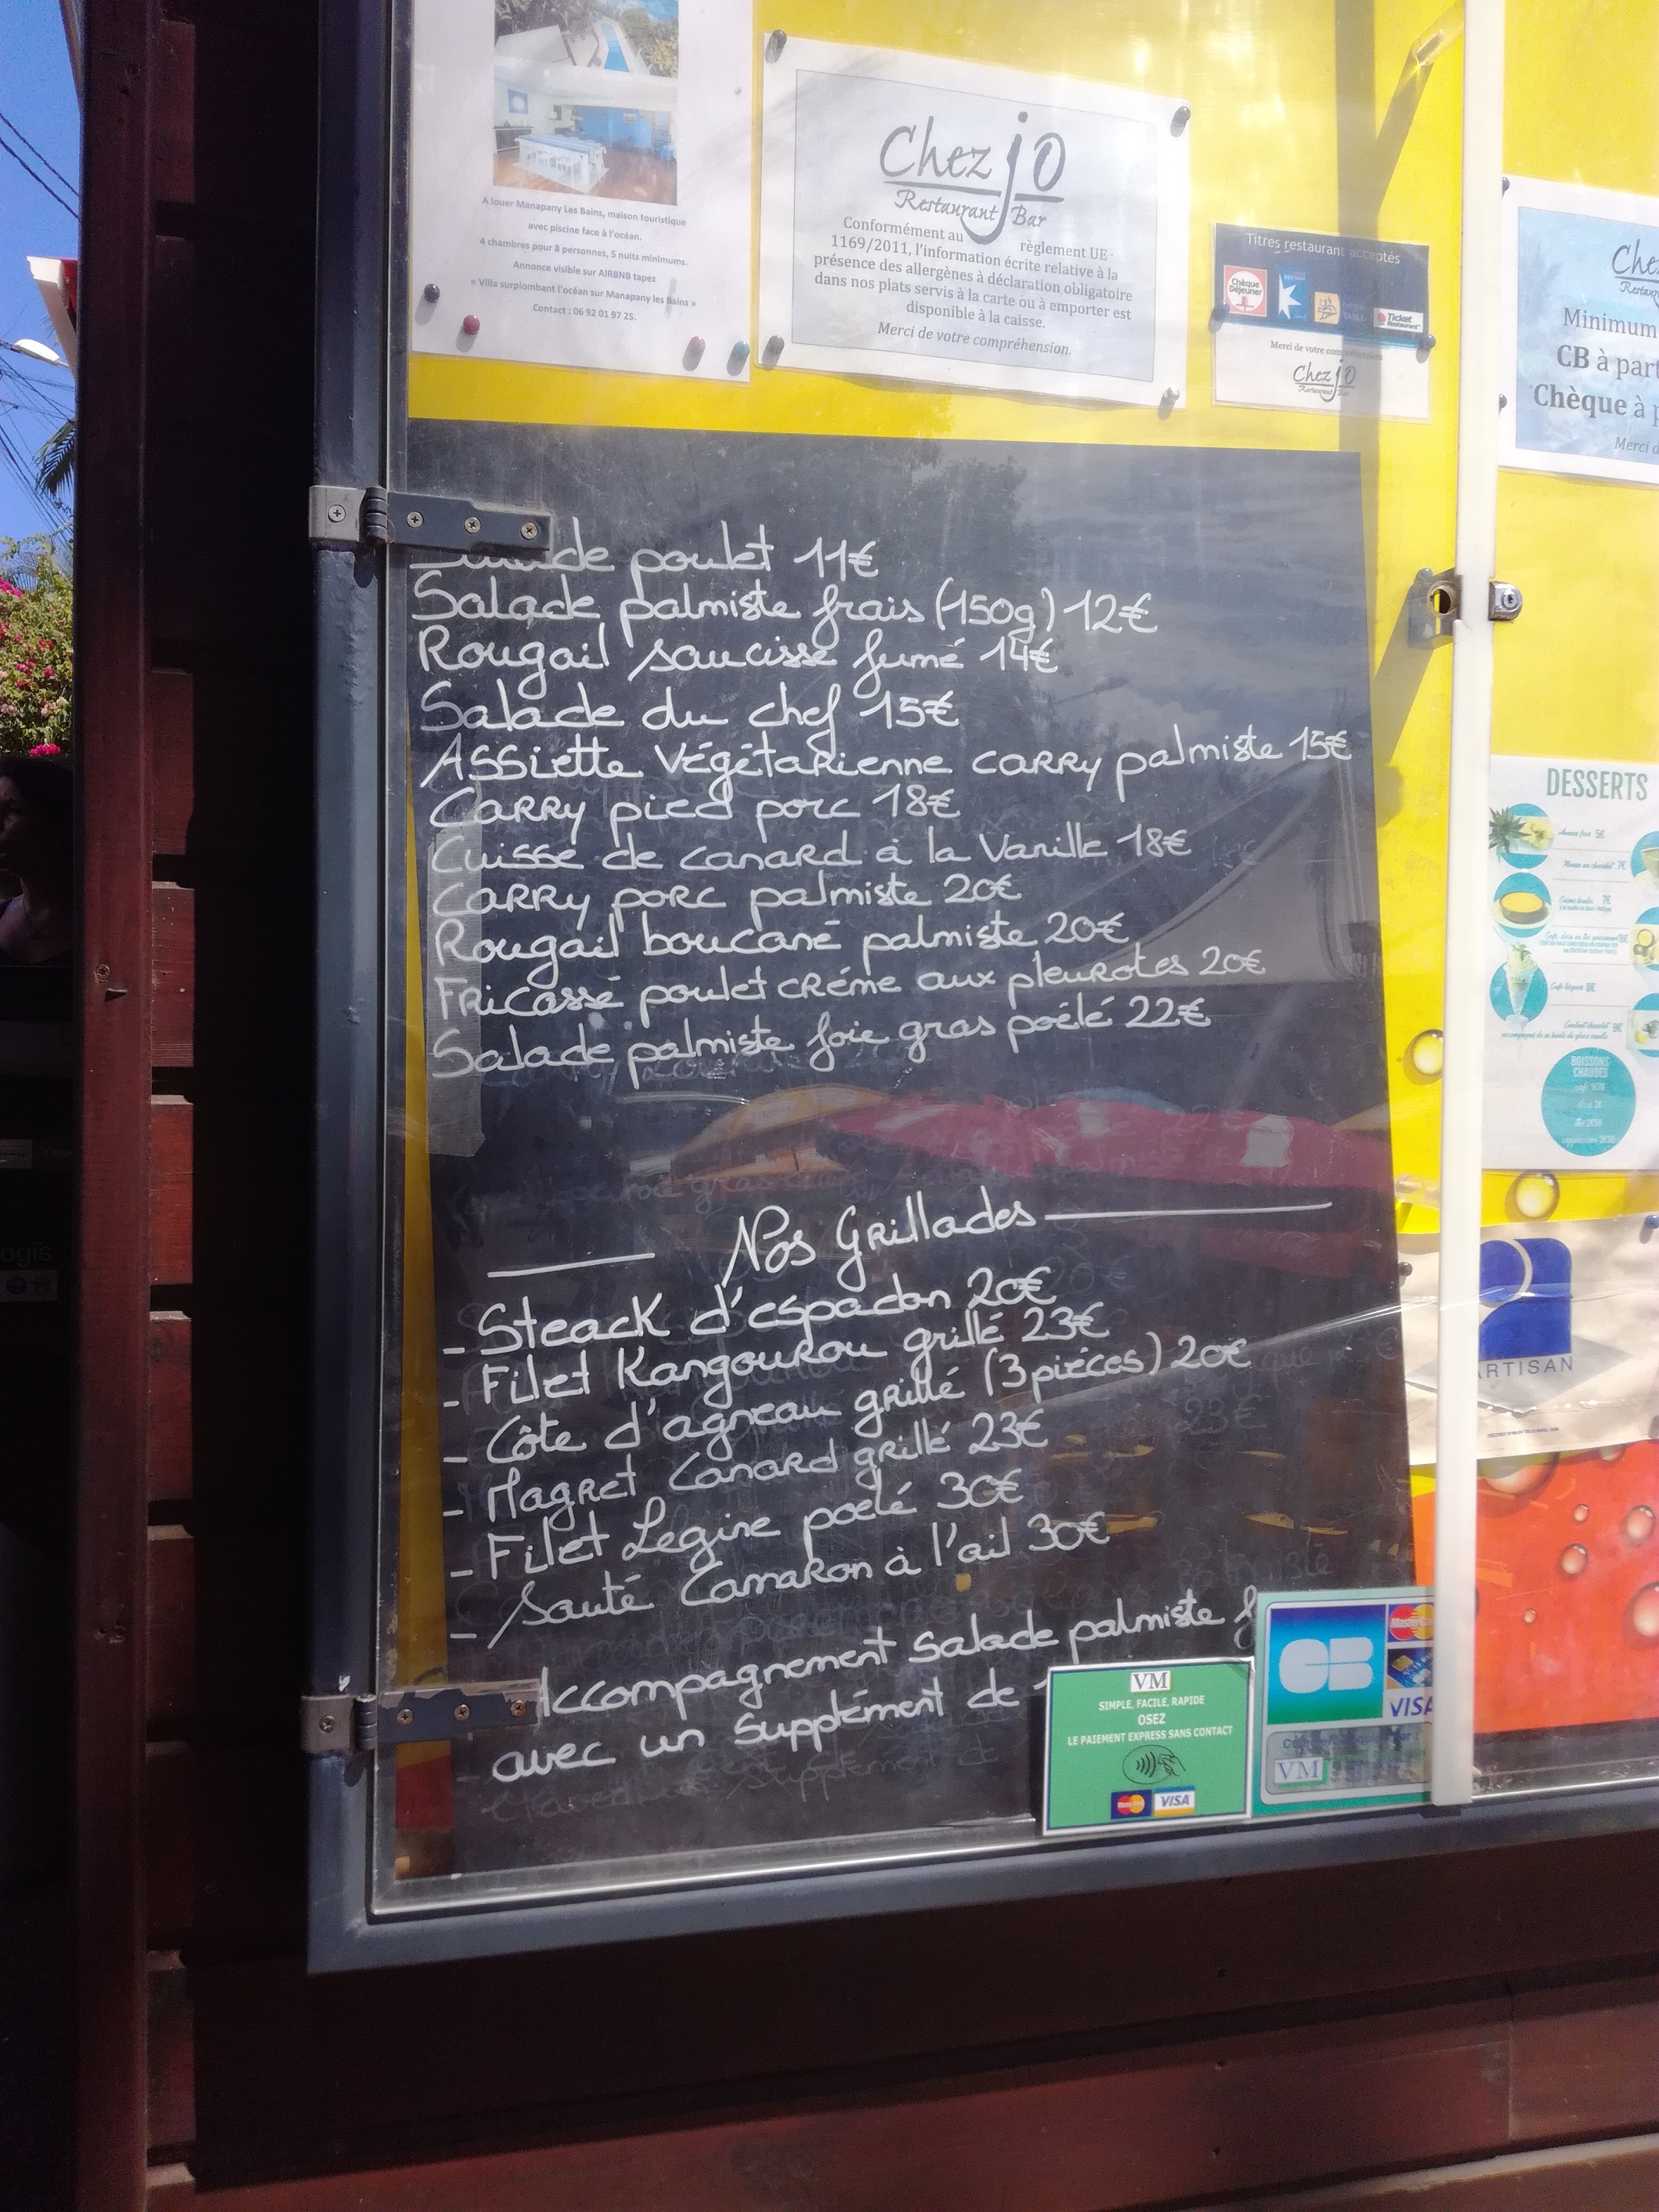 A louer Manapany Les Bains, maison touristique
avec piscine face à l'océan.
4 chambres pour 8 personnes, 5 nuits minimums.
Annonce visible sur AIRBNB tapez
« Villa surplombant l'océan sur Manapany les Bains »
Contact : 06 92 01 97 25.
Chez jo
Restaurant Bar
Conformément au règlement UE
1169/2011, l'information écrite relative à la
présence des allergènes à déclaration obligatoire
dans nos plats servis à la carte ou à emporter est
disponible à la caisse.
Merci de votre compréhension.
Titres restaurant acceptés
Chèque Déjeuner
Ticket Restaurant
Merci de votre compréhension
Chez jo
Restaurant Bar
Chez
Minimum
CB à part
Chèque à p
Merci d
poulet 11€
Salade palmiste frais (150g) 12€
Rougail saucisse fumé 14€
Salade du chef 15€
Assiette Végétarienne carry palmiste 15€
Carry pied porc 18€
Cuisse de canard à la Vanille 18€
Carry porc palmiste 20€
Rougail boucané palmiste 20€
Fricassé poulet créme aux pleurotes 20€
Salade palmiste foie gras poélé 22€
Nos Grillades
- Steack d'espadon 20€
- Filet Kangourou grillé 23€
- Côte d'agneau grillé (3 piéces) 20€
- Magret Canard grillé 23€
- Filet Legine poélé 30€
- Sauté Camaron à l'ail 30€
Accompagnement Salade palmiste f
avec un Supplément de
VM
SIMPLE, FACILE, RAPIDE
OSEZ
LE PAIEMENT EXPRESS SANS CONTACT
MasterCard VISA
CB
MasterCard
VISA
VM
DESSERTS
BOISSONS
CHAUDES
ARTISAN